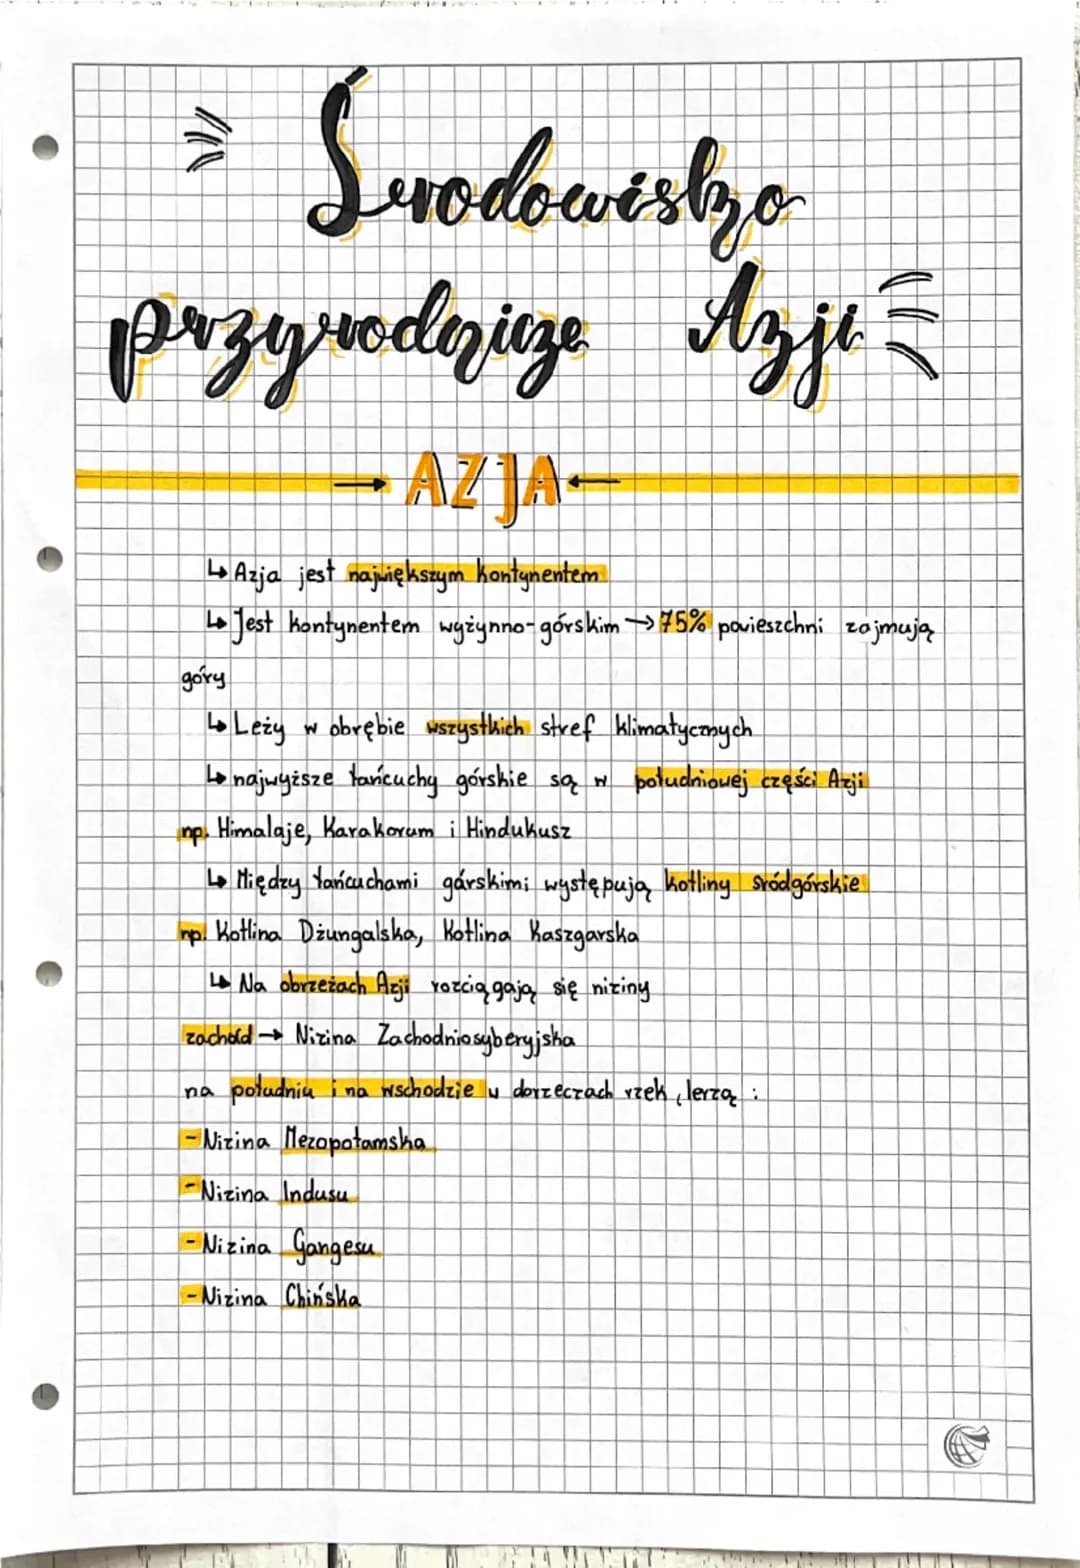 Środowisko
przyrodnicze Azji
AZJA
↳ Azja jest największym kontynentem
↳ Jest kontynentem wyżynno-górskim → 75% powieszchni zajmują
góry
↳ Leży w obrębie wszystkich stref klimatycznych
↳ najwyższe łańcuchy górskie są w południowej części Azji
np. Himalaje, Karakorum i Hindukusz
↳ Między łańcuchami górskimi występują kotliny śródgórskie
np. Kotlina Dżungalska, Kotlina Kaszgarska
↳ Na obrzeżach Azji rozciągają się niziny
zachód → Nizina Zachodniosyberyjska
na południu i na wschodzie w dorzeczach rzek, lerzą :
- Nizina Mezopotamska
- Nizina Indusu
- Nizina Gangesu
- Nizina Chińska